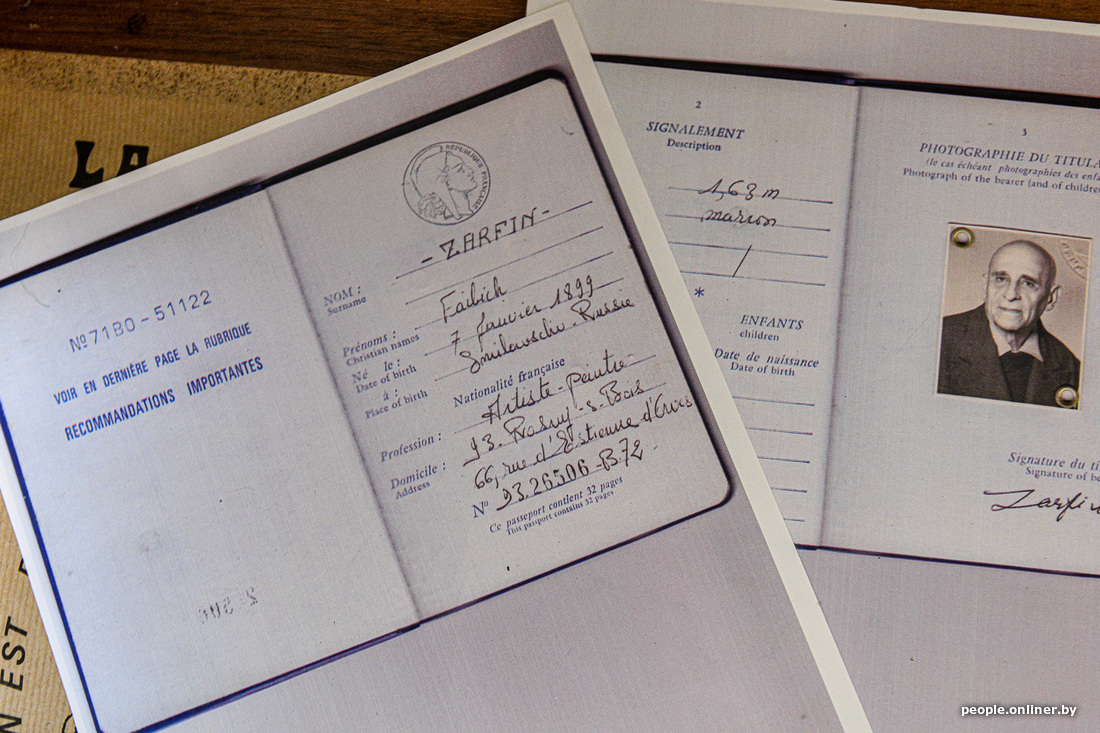 LA
EST
N
Nº71BO-51122
VOIR EN DERNIÈRE PAGE LA RUBRIQUE
RECOMMANDATIONS IMPORTANTES
RÉPUBLIQUE FRANÇAISE
-ZARFIN-
NOM :
Surname
Faibich
Prénoms :
Christian names
7 Janvier 1899
Né le :
Date of birth
Smilowschi. Russie
à :
Place of birth
Nationalité française
Artiste-peintre-
Profession :
93. Rosny-s-Bois
Domicile :
Address
66, rue d'Estienne d'Orves
Nº 93.26506-B72-
Ce passeport contient 32 pages
This passport contains 32 pages
2
SIGNALEMENT
Description
1,63 m
marron
/
*
ENFANTS
children
Date de naissance
Date of birth
3
PHOTOGRAPHIE DU TITULA
(le cas échéant photographies des enfa
Photograph of the bearer (and of childre
Signature du ti
Signature of be
Zarfin
people.onliner.by